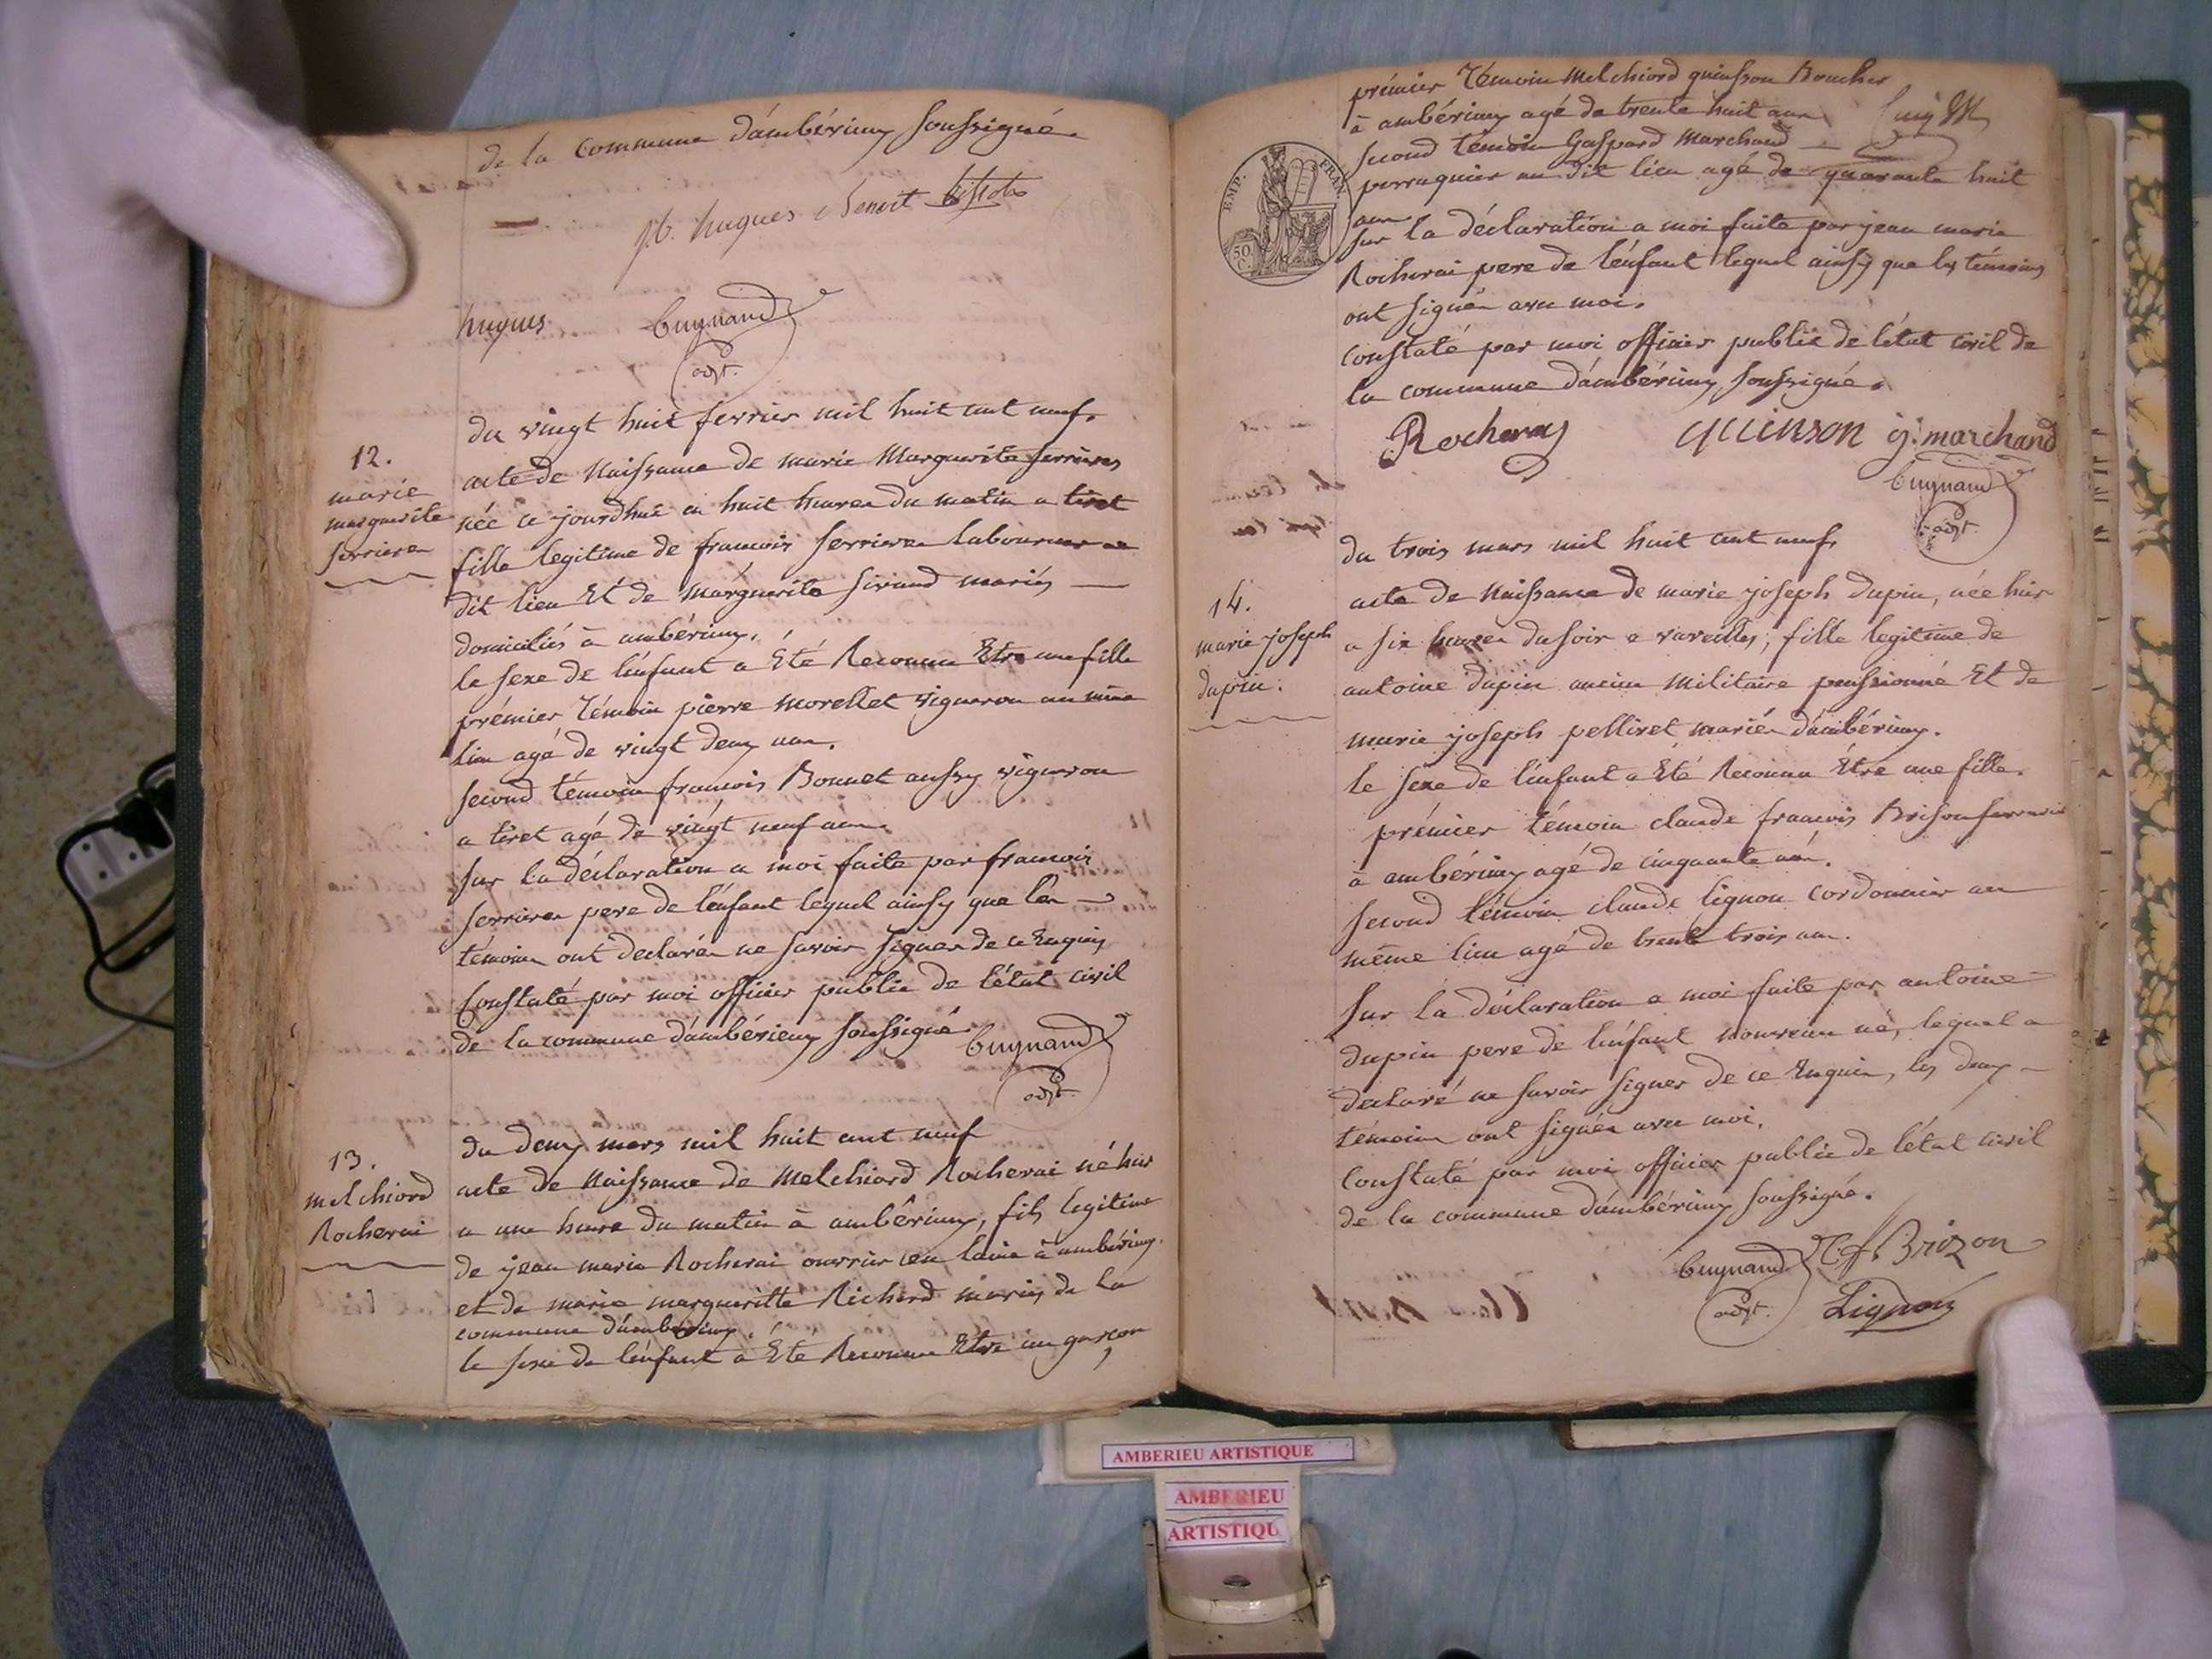 de la commune d'ambérieux soussigné.
hugues Benoit
hugues Cuynand
adjt.
du vingt huit fevrier mil huit cent neuf.
12.
marie
marguerite
ferrieres
acte de Naissance de marie Marguerite ferrieres
née ce jourdhui a huit heures du matin a tiret
fille legitime de francois ferrieres laboureur au
dit lieu Et de Marguerite sivand mariés
domiciliés à ambérieux.
le sexe de l'enfant a Eté Reconnu Etre une fille
prémier témoin pierre Morellet vigneron au même
lieu agé de vingt deux ans.
second témoin francois Bonnet aussy vigneron
a tiret agé de vingt neuf ans.
sur la déclaration a moi faite par francois
ferrieres pere de l'énfant lequel ainsy que les
témoins ont declarés ne savoir signer de ce Enquis
Constaté par moi officier public de l'état civil
de la commune d'ambérieux soussigné.
Cuynand
adjt.
du deux mars mil huit cent neuf
13.
melchiord
Rocherai
acte de Naissance de Melchiord Rocherai né hier
a une heure du matin à ambérieux, fils legitime
de jean marie Rocherai ouvrier en laine à ambérieux.
et de marie margueritte Richerd mariés de la
commune d'ambérieux.
le sexe de l'enfant a Eté Reconnu Etre un garçon
prémier témoin Melchiord quinsson Boucher
à ambérieux agé de trente huit ans
second témoin Gaspard Marchand
perruquier au dit lieu agé de quarante huit
ans
EMP. FRAN.
50 C.
sur la déclaration a moi faite par jean marie
Rocherai pere de l'énfant lequel ainsy que les témoins
ont signés avec moi.
constaté par moi officier public de l'état civil de
la commune d'ambérieux, soussigné.
Rocheray quinson g. marchand
Cuynand
adjt.
du trois mars mil huit cent neuf,
14.
marie joseph
dupin.
acte de Naissance de marie joseph dupin, née hier
a six heures du soir a vareilles, fille legitime de
antoine dupin ancien Militaire pensionné Et de
marie joseph pelliret mariés d'ambérieux.
le sexe de l'enfant a Eté Reconnu Etre une fille.
prémier témoin claude francois Brison
à ambérieux agé de cinquante ans.
second témoin claude lignon cordonnier au
même lieu agé de trente trois ans.
Sur la déclaration a moi faite par antoine
dupin pere de l'énfant nouveau né, lequel a
declaré ne savoir signer de ce Enquis, les deux
témoins ont signés avec moi.
Constaté par moi officier public de l'état civil
de la commune d'ambérieux soussigné.
Cuynand C. f. Brizon
adjt. Lignon
AMBERIEU ARTISTIQUE
AMBERIEU
ARTISTIQU